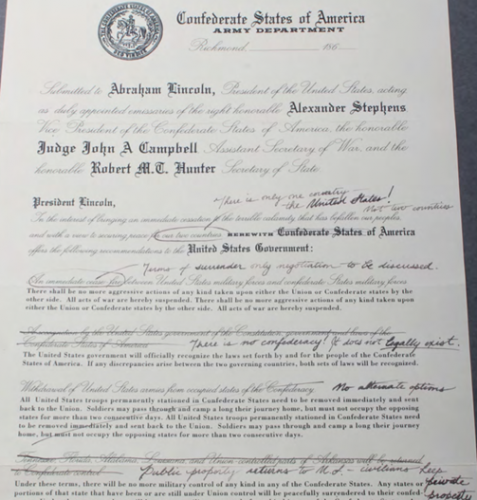 Confederate States of America
ARMY DEPARTMENT
Richmond 186
Submitted to Abraham Lincoln, President of the United States, acting
as duly appointed emissaries of the right honorable Alexander Stephens
Vice President of the Confederate States of America, the honorable
Judge John A Campbell Assistant Secretary of War, and the
honorable Robert M.T. Hunter Secretary of State
There is only one country
the United States!
Not two countries
President Lincoln,
In the interest of bringing an immediate cessation of the terrible calamity that has befallen our peoples,
and with a view to securing peace for our two countries HEREWITH Confederate States of America
offers the following recommendations to the United States Government:
Terms of surrender only negotiation to be discussed.
An immediate cease fire between United States military forces and confederate States military forces
There shall be no more aggressive actions of any kind taken upon either the Union or Confederate states by the
other side. All acts of war are hereby suspended. There shall be no more aggressive actions of any kind taken upon
either the Union or Confederate states by the other side. All acts of war are hereby suspended.
by the United States of the
Confederate States of America
There is no confederacy! It does not legally exist.
The United States government will officially recognize the laws set forth by and for the people of the Confederate
States of America. If any discrepancies arise between the two governing countries, both sets of laws will be recognized.
Withdrawal of United States armies from occupied states of the Confederacy
No alternate options
All United States troops permanently stationed in Confederate States need to be removed immediately and sent
back to the Union. Soldiers may pass through and camp a long their journey home, but must not occupy the opposing
states for more than two consecutive days. All United States troops permanently stationed in Confederate States Need
to be removed immediately and sent back to the Union. Soldiers may pass through and camp a long their journey
home, but must not occupy the opposing states for more than two consecutive days.
and Union controlled parts of will be
to Confederate control
Public property returns to U.S. - civilians keep
private
property
Under these terms, there will be no more military control of any kind in any of the Confederacy. Any states or
portions of that state that have been or are still under Union control will be peacefully surrendered to their